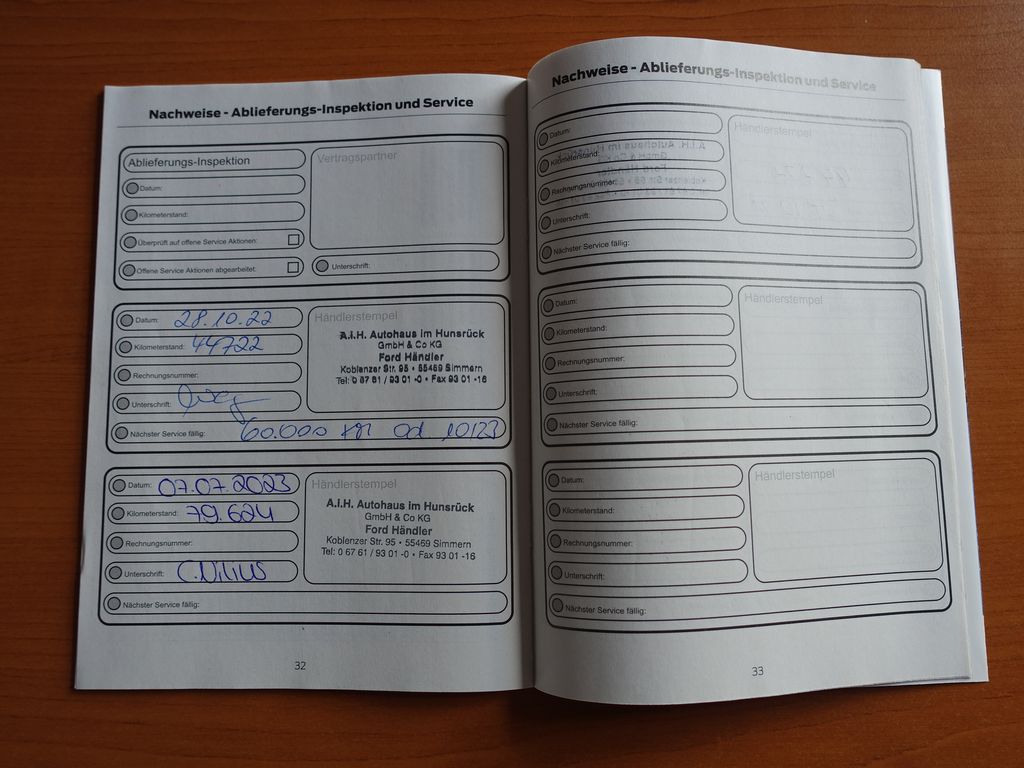 Nachweise - Ablieferungs-Inspektion und Service
Ablieferungs-Inspektion
Datum:
Kilometerstand:
Überprüft auf offene Service Aktionen:
Offene Service Aktionen abgearbeitet:
Vertragspartner
Unterschrift:
Datum: 28.10.22
Kilometerstand: 44722
Rechnungsnummer:
Unterschrift:
Händlerstempel
A.i.H. Autohaus im Hunsrück
GmbH & Co KG
Ford Händler
Koblenzer Str. 95 • 55469 Simmern
Tel: 0 67 61 / 93 01 -0 • Fax 93 01 -16
Nächster Service fällig: 60.000 km od 10/23
Datum: 07.07.2023
Kilometerstand: 79.624
Rechnungsnummer:
Unterschrift: C. Nilius
Händlerstempel
A.i.H. Autohaus im Hunsrück
GmbH & Co KG
Ford Händler
Koblenzer Str. 95 • 55469 Simmern
Tel: 0 67 61 / 93 01 -0 • Fax 93 01 -16
Nächster Service fällig:
32
Nachweise - Ablieferungs-Inspektion und Service
Datum:
Kilometerstand:
Rechnungsnummer:
Unterschrift:
Händlerstempel
Nächster Service fällig:
Datum:
Kilometerstand:
Rechnungsnummer:
Unterschrift:
Händlerstempel
Nächster Service fällig:
Datum:
Kilometerstand:
Rechnungsnummer:
Unterschrift:
Händlerstempel
Nächster Service fällig:
33